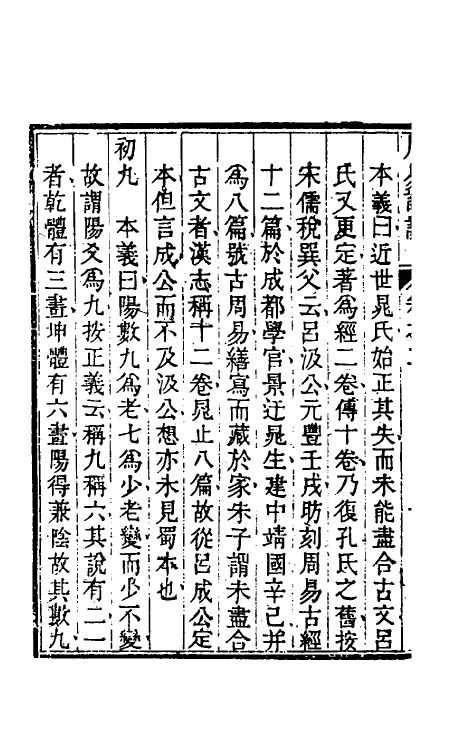 本義曰近世晁氏始正其失而未能盡合古文呂
氏又更定著爲經二卷傳十卷乃復孔氏之舊按
宋儒稅巽父云呂汲公元豐壬戌昉刻周易古經
十二篇於成都學官景迂晁生建中靖國辛巳并
爲八篇號古周易繕寫而藏於家朱子謂未盡合
古文者漢志稱十二卷晁止八篇故從呂成公定
本但言成公而不及汲公想亦未見蜀本也
初九　本義曰陽數九爲老七爲少老變而少不變
故謂陽爻爲九按正義云稱九稱六其說有二一
者乾體有三畫坤體有六畫陽得兼陰故其數九